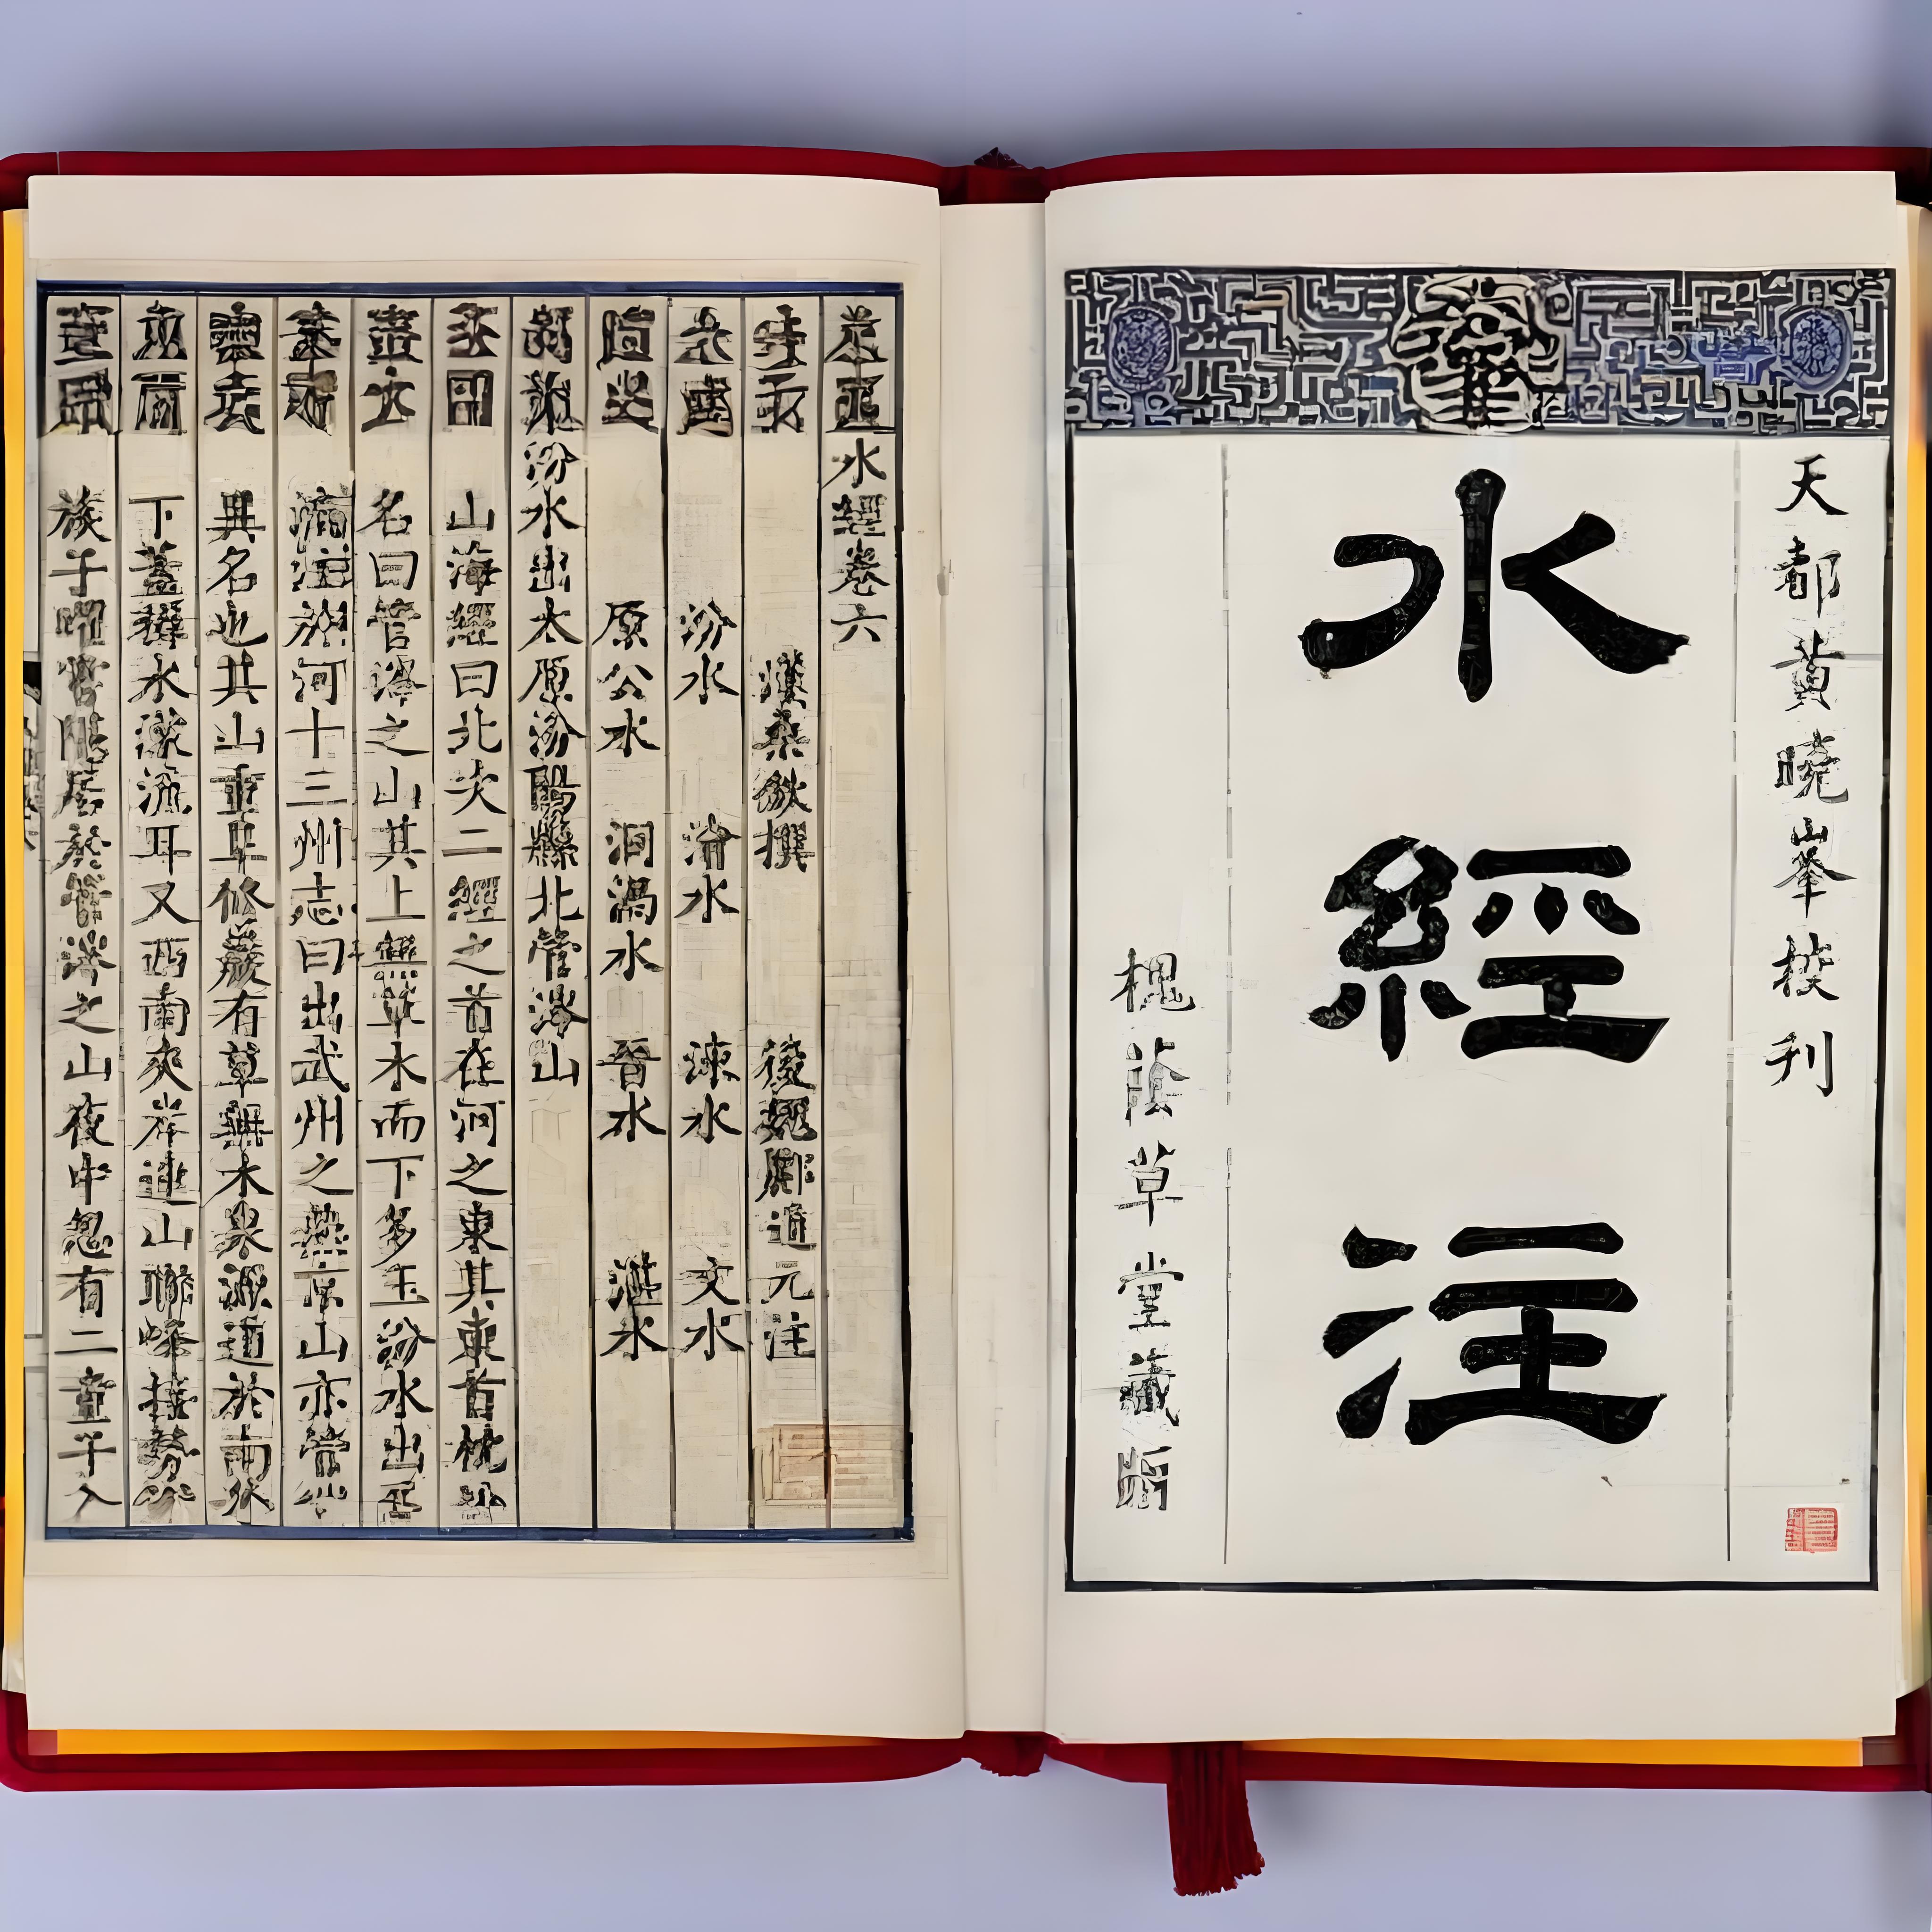 天都黃曉峯挍刊
水經注
槐蔭草堂藏版
水經卷六
漢桑欽撰 後魏酈道元注
汾水 澮水 涑水 文水
原公水 洞渦水 晉水 湛水
汾水出太原汾陽縣北管涔山
山海經曰北次二經之首在河之東其東首枕汾
名曰管涔之山其上無草木而下多玉汾水出焉
注於河十三州志曰出武州之燕京山亦管涔
異名也其山重阜修巖有草無木泉源道於南
下蓋稚水濛流耳又西南夾岸連山聯峰接勢
族子曜嘗隱居於管涔之山夜中忽有二童子入